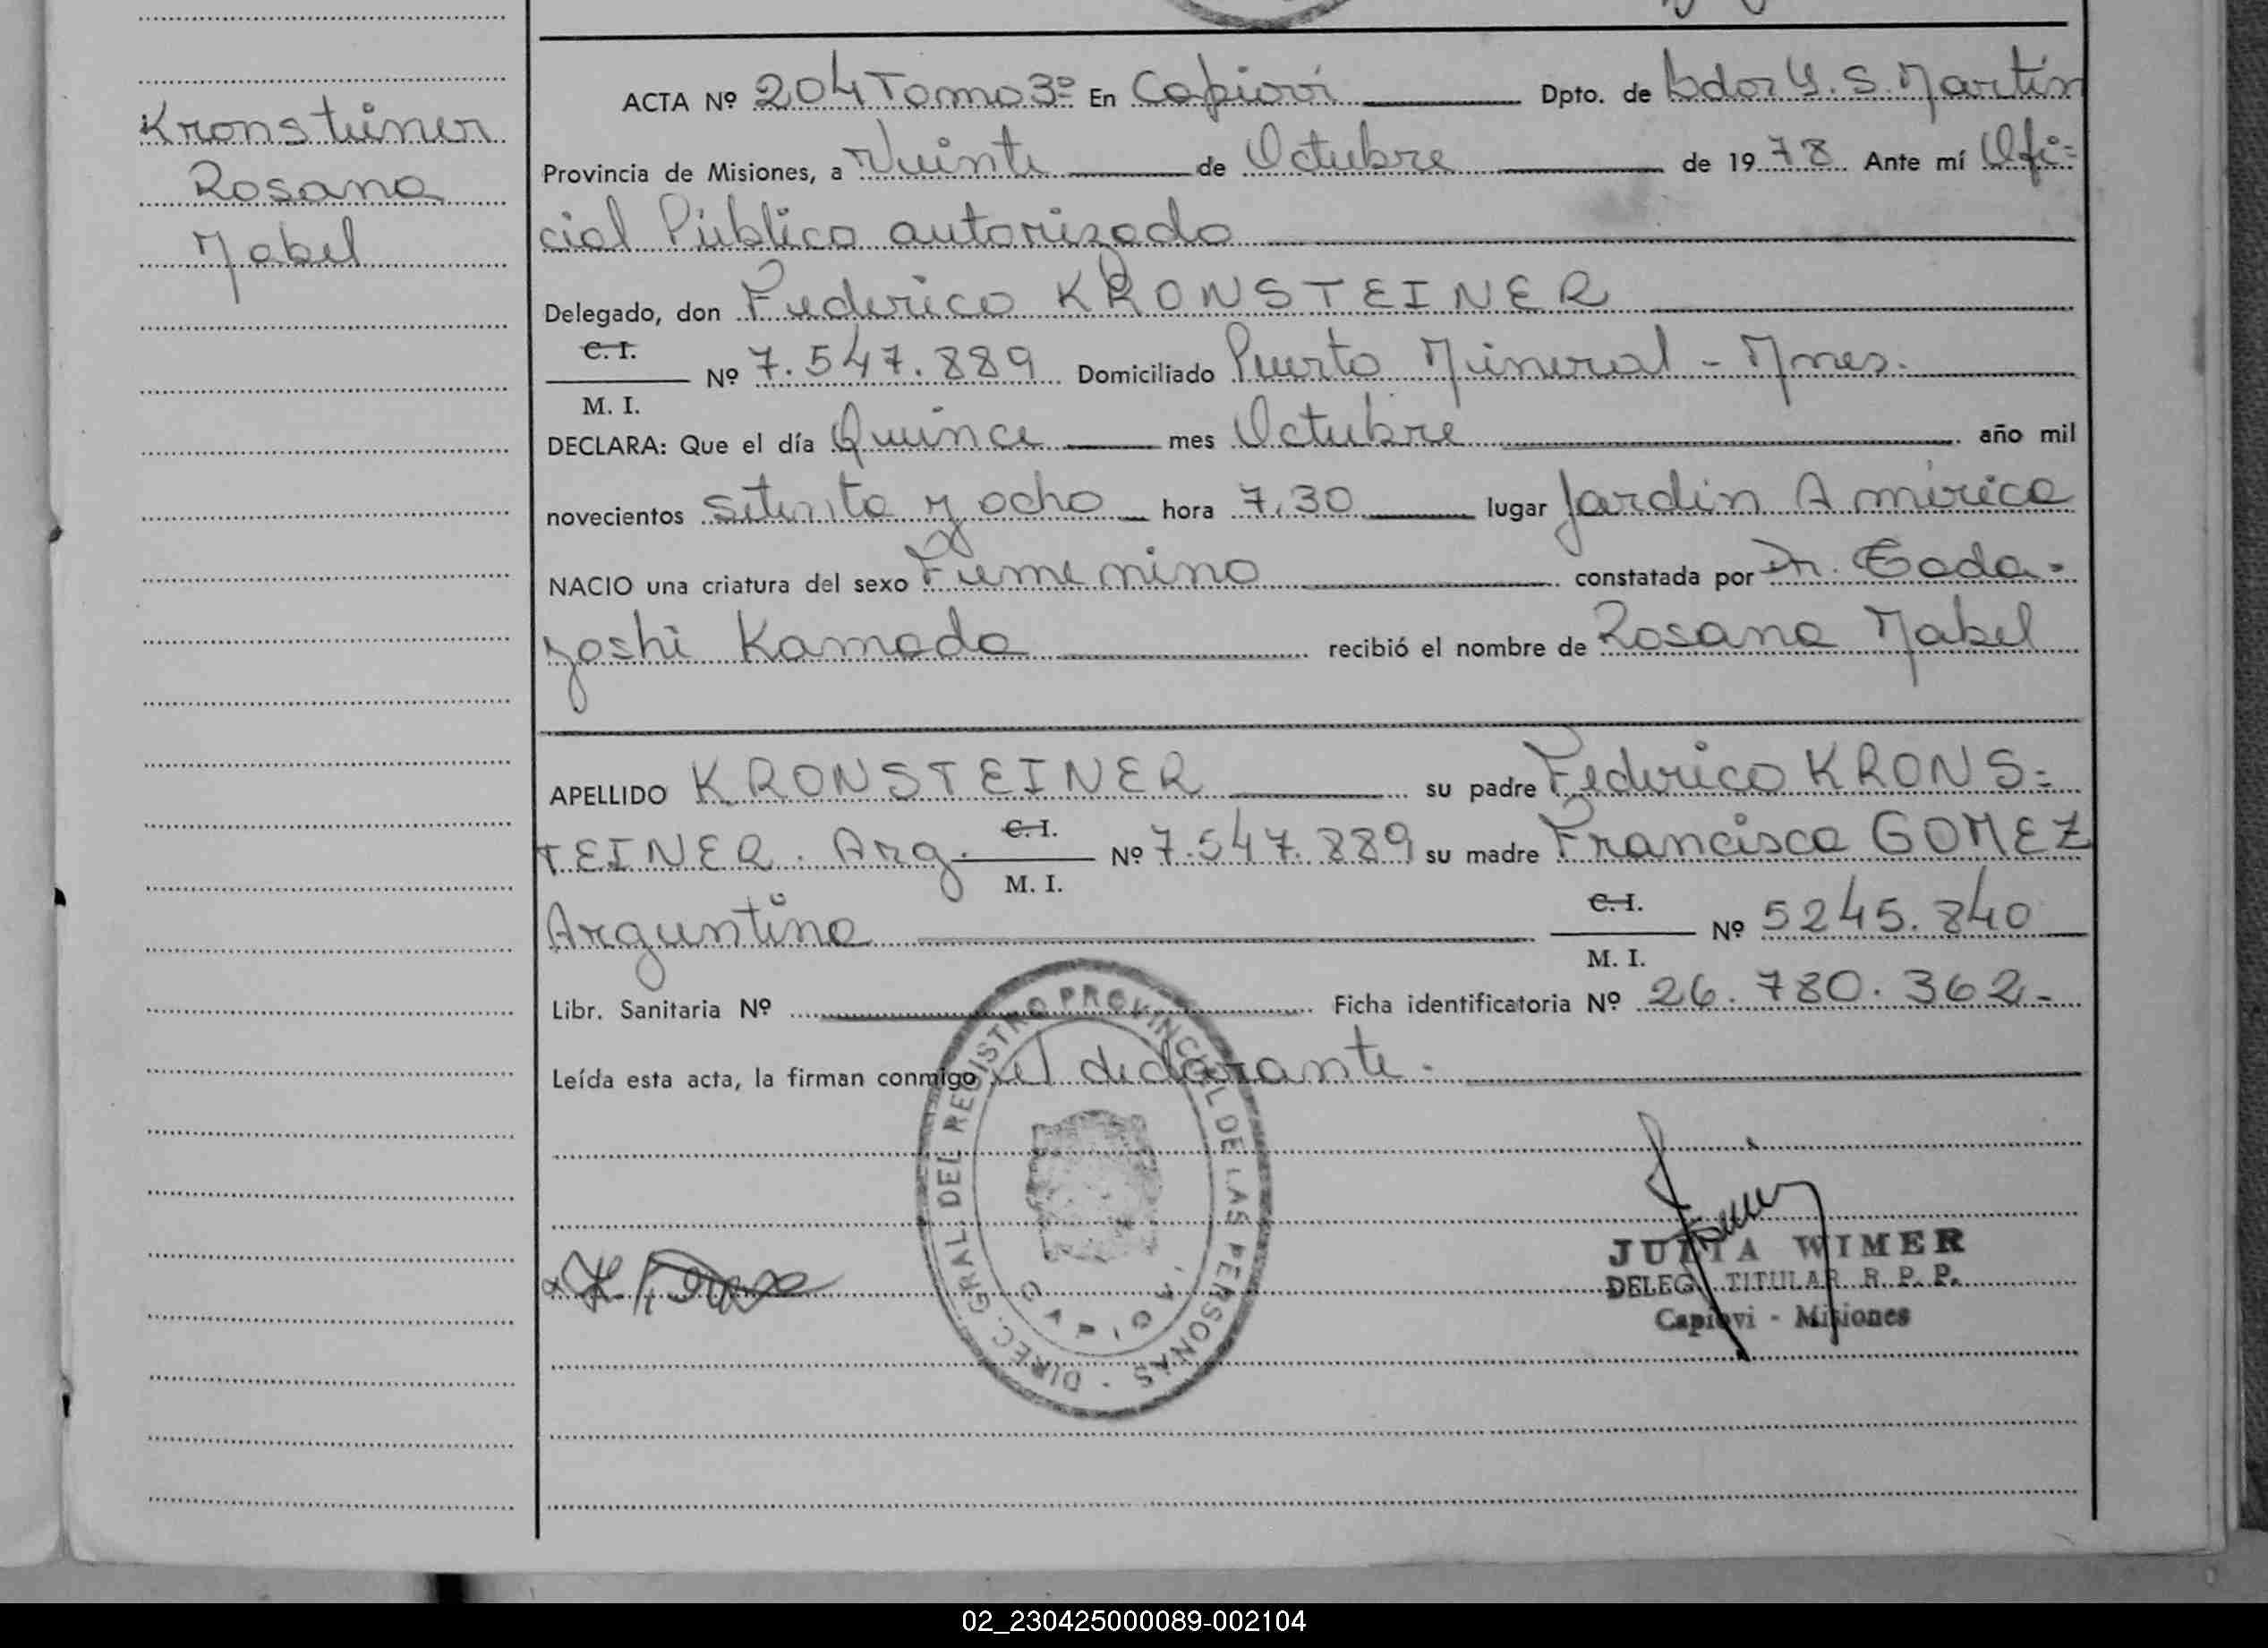 Kronsteiner
Rosana
Mabel
ACTA Nº 204 Tomo 3º En Capioví Dpto. de Ldor G. S. Martín
Provincia de Misiones, a Veinte de Octubre de 1978 Ante mí Ofi=
cial Público autorizado
Delegado, don Federico KRONSTEINER
C. I.
M. I. Nº 7.547.889 Domiciliado Puerto Mineral - Mnes.
DECLARA: Que el día Quince mes Octubre año mil
novecientos setenta y ocho hora 7,30 lugar Jardín América
NACIO una criatura del sexo Femenino constatada por Dr. Tada-
yoshi Kamada recibió el nombre de Rosana Mabel
APELLIDO KRONSTEINER su padre Federico KRONS=
TEINER. Arg. C. I. M. I. Nº 7.547.889 su madre Francisca GOMEZ
Argentina C. I. M. I. Nº 5245.840
Libr. Sanitaria Nº Ficha identificatoria Nº 26.780.362-
Leída esta acta, la firman conmigo el declarante.
DIREC. GRAL. DEL REGISTRO PROVINCIAL DE LAS PERSONAS -
CAPIOVI
JULIA WIMER
DELEG. TITULAR R. P. P.
Capiovi - Misiones
02_230425000089-002104